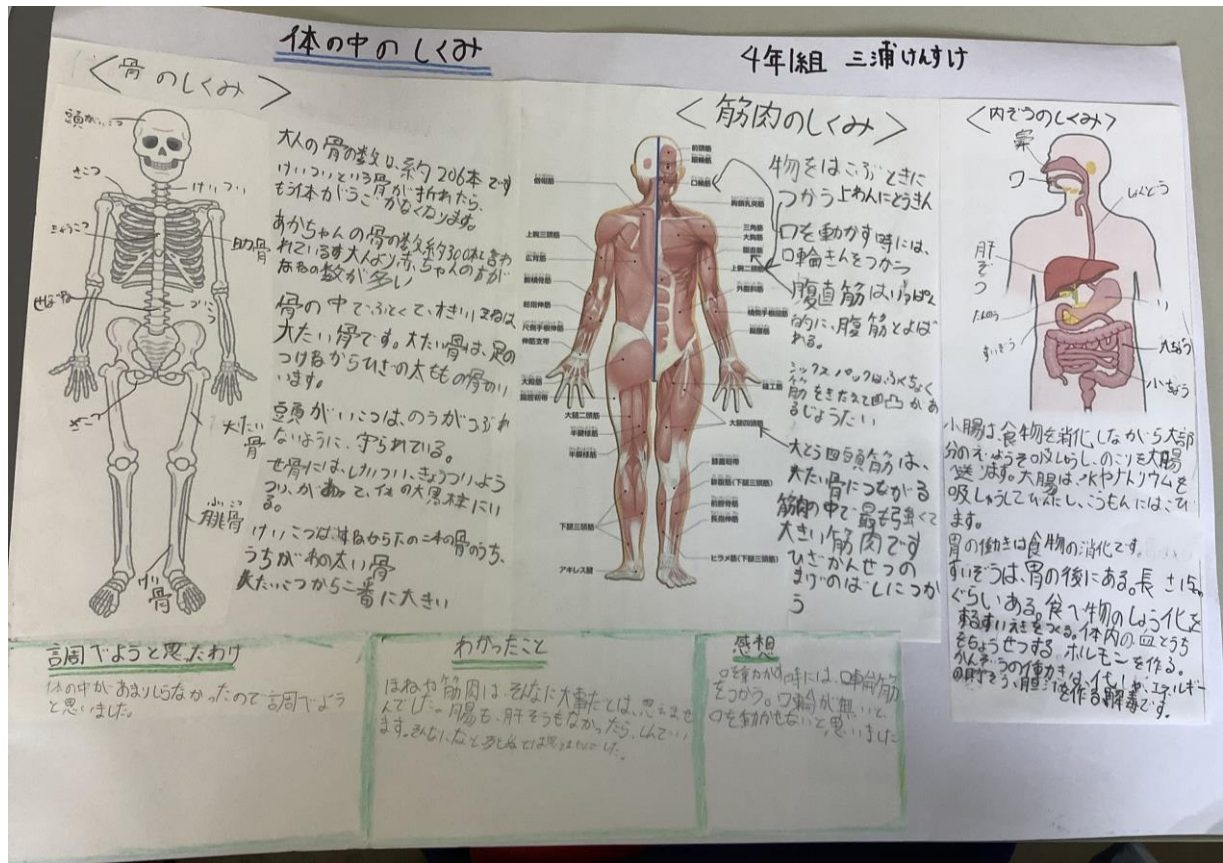 体の中のしくみ
4年1組 三浦けんすけ
〈骨のしくみ〉
頭がいこつ
さこつ
けいつい
きょうこつ
肋骨
せぼね
ざこつ
大たい骨
ひこつ
腓骨
けい骨
大人の骨の数は、約206本です
けいついという骨が折れたら、
もう体がうごかなくなります。
あかちゃんの骨の数約300本と言わ
れているす大人より赤ちゃんの方が
ほねの数が多い
骨の中でふとくて、大きいほねは、
大たい骨です。大たい骨は、足の
つけねからひざの太ももの骨かい
います。
頭がいこつは、のうがつぶれ
ないように、守られている。
せ骨には、けいつい、きょうつい、よう
つい、があって、体の大黒柱にい
る。
けいこつは、すねから下の二本の骨のうち、
うちがわの太い骨
大たいこつから二番に大きい
〈筋肉のしくみ〉
前頭筋
眼輪筋
口輪筋
胸鎖乳突筋
僧帽筋
三角筋
大胸筋
腹直筋
上腕二頭筋
上腕三頭筋
広背筋
外腹斜筋
腕橈骨筋
総指伸筋
橈側手根屈筋
尺側手根伸筋
伸筋支帯
大殿筋
縫工筋
腸脛靭帯
大腿二頭筋
大腿四頭筋
半腱様筋
半膜様筋
膝蓋靭帯
腓腹筋(下腿三頭筋)
前脛骨筋
長指伸筋
下腿三頭筋
ヒラメ筋(下腿三頭筋)
アキレス腱
物をはこぶときに
つかう上わんにとうきん
口を動かす時には、
口輪きんをつかう
腹直筋はいっぱん
的に、腹筋とよば
れる。
シックスパックは、ふくちょく
筋をきたえて凹凸があ
るじょうたい
大とう四頭筋は、
大たい骨につながる
筋肉の中で最も強くて
大きい筋肉です
ひざかんせつの
まげのばしにつか
う
〈内ぞうのしくみ〉
鼻
口
しょくどう
肝ぞう
たんのう
い
すいぞう
大ちょう
小ちょう
小腸は、食物を消化しながら大部
分のえいようそ吸しゅうし、のこりを大腸
へ送ります。大腸は水やナトリウムを
吸しゅうしてべんにし、こうもんにはこび
ます。
胃の働きは食物の消化です。
すいぞうは、胃の後にある。長さ15㎝
ぐらいある。食べ物のしょう化を
するすいえきをつくる。体内の血とうち
をちょうせつする ホルモンを作る。
かんぞうの働きは、代しゃ、エネルギー
の貯ぞう、胆汁を作る、解毒です。
調べようと思ったわけ
体の中があまりしらなかったので調べよう
と思いました。
わかったこと
ほねや筋肉は、そんなに大事だとは、思えませ
んでした。腸も、肝ぞうもなかったら、しんでい
ます。そんなになと死ぬとは思いませんでした。
感想
口を動かす時には、口輪筋
をつかう。口輪が無いと、
口を動かせないと、思いました